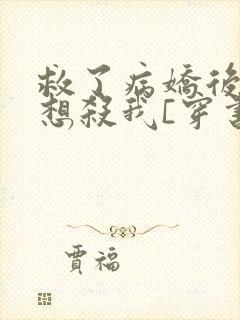 救了病嬌後
想殺我[穿書
賈福